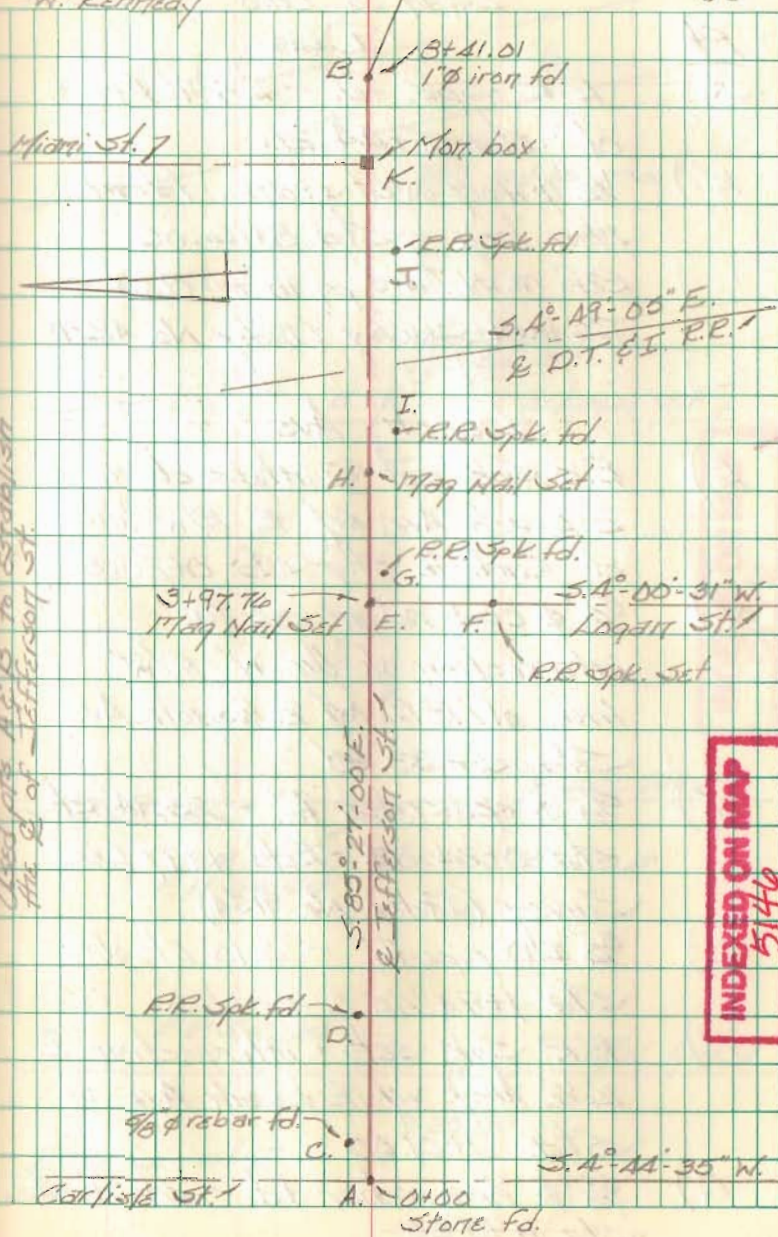 W. Kennedy
8+41.01
B.
1"φ iron fd.
Miami St.
Mon. box
K.
R.R. Spk. fd.
J.
S.4°-49'-05"E.
℄ D.T. & I. R.R.
I.
R.R. Spk. fd.
H.
Mag Nail Set
R.R. Spk. fd.
G.
3+97.76
Mag Nail Set
E.
F.
S.4°-00'-31"W.
Logan St.
R.R. Spk. Set
Used pts A & B to establish
the ℄ of Jefferson St.
S.85°-27'-00"E.
℄ Jefferson St.
INDEXED ON MAP
5146
R.R. Spk. fd.
D.
5/8"φ rebar fd.
C.
S.4°-44'-35"W.
Carlisle St.
A.
0+00
Stone fd.